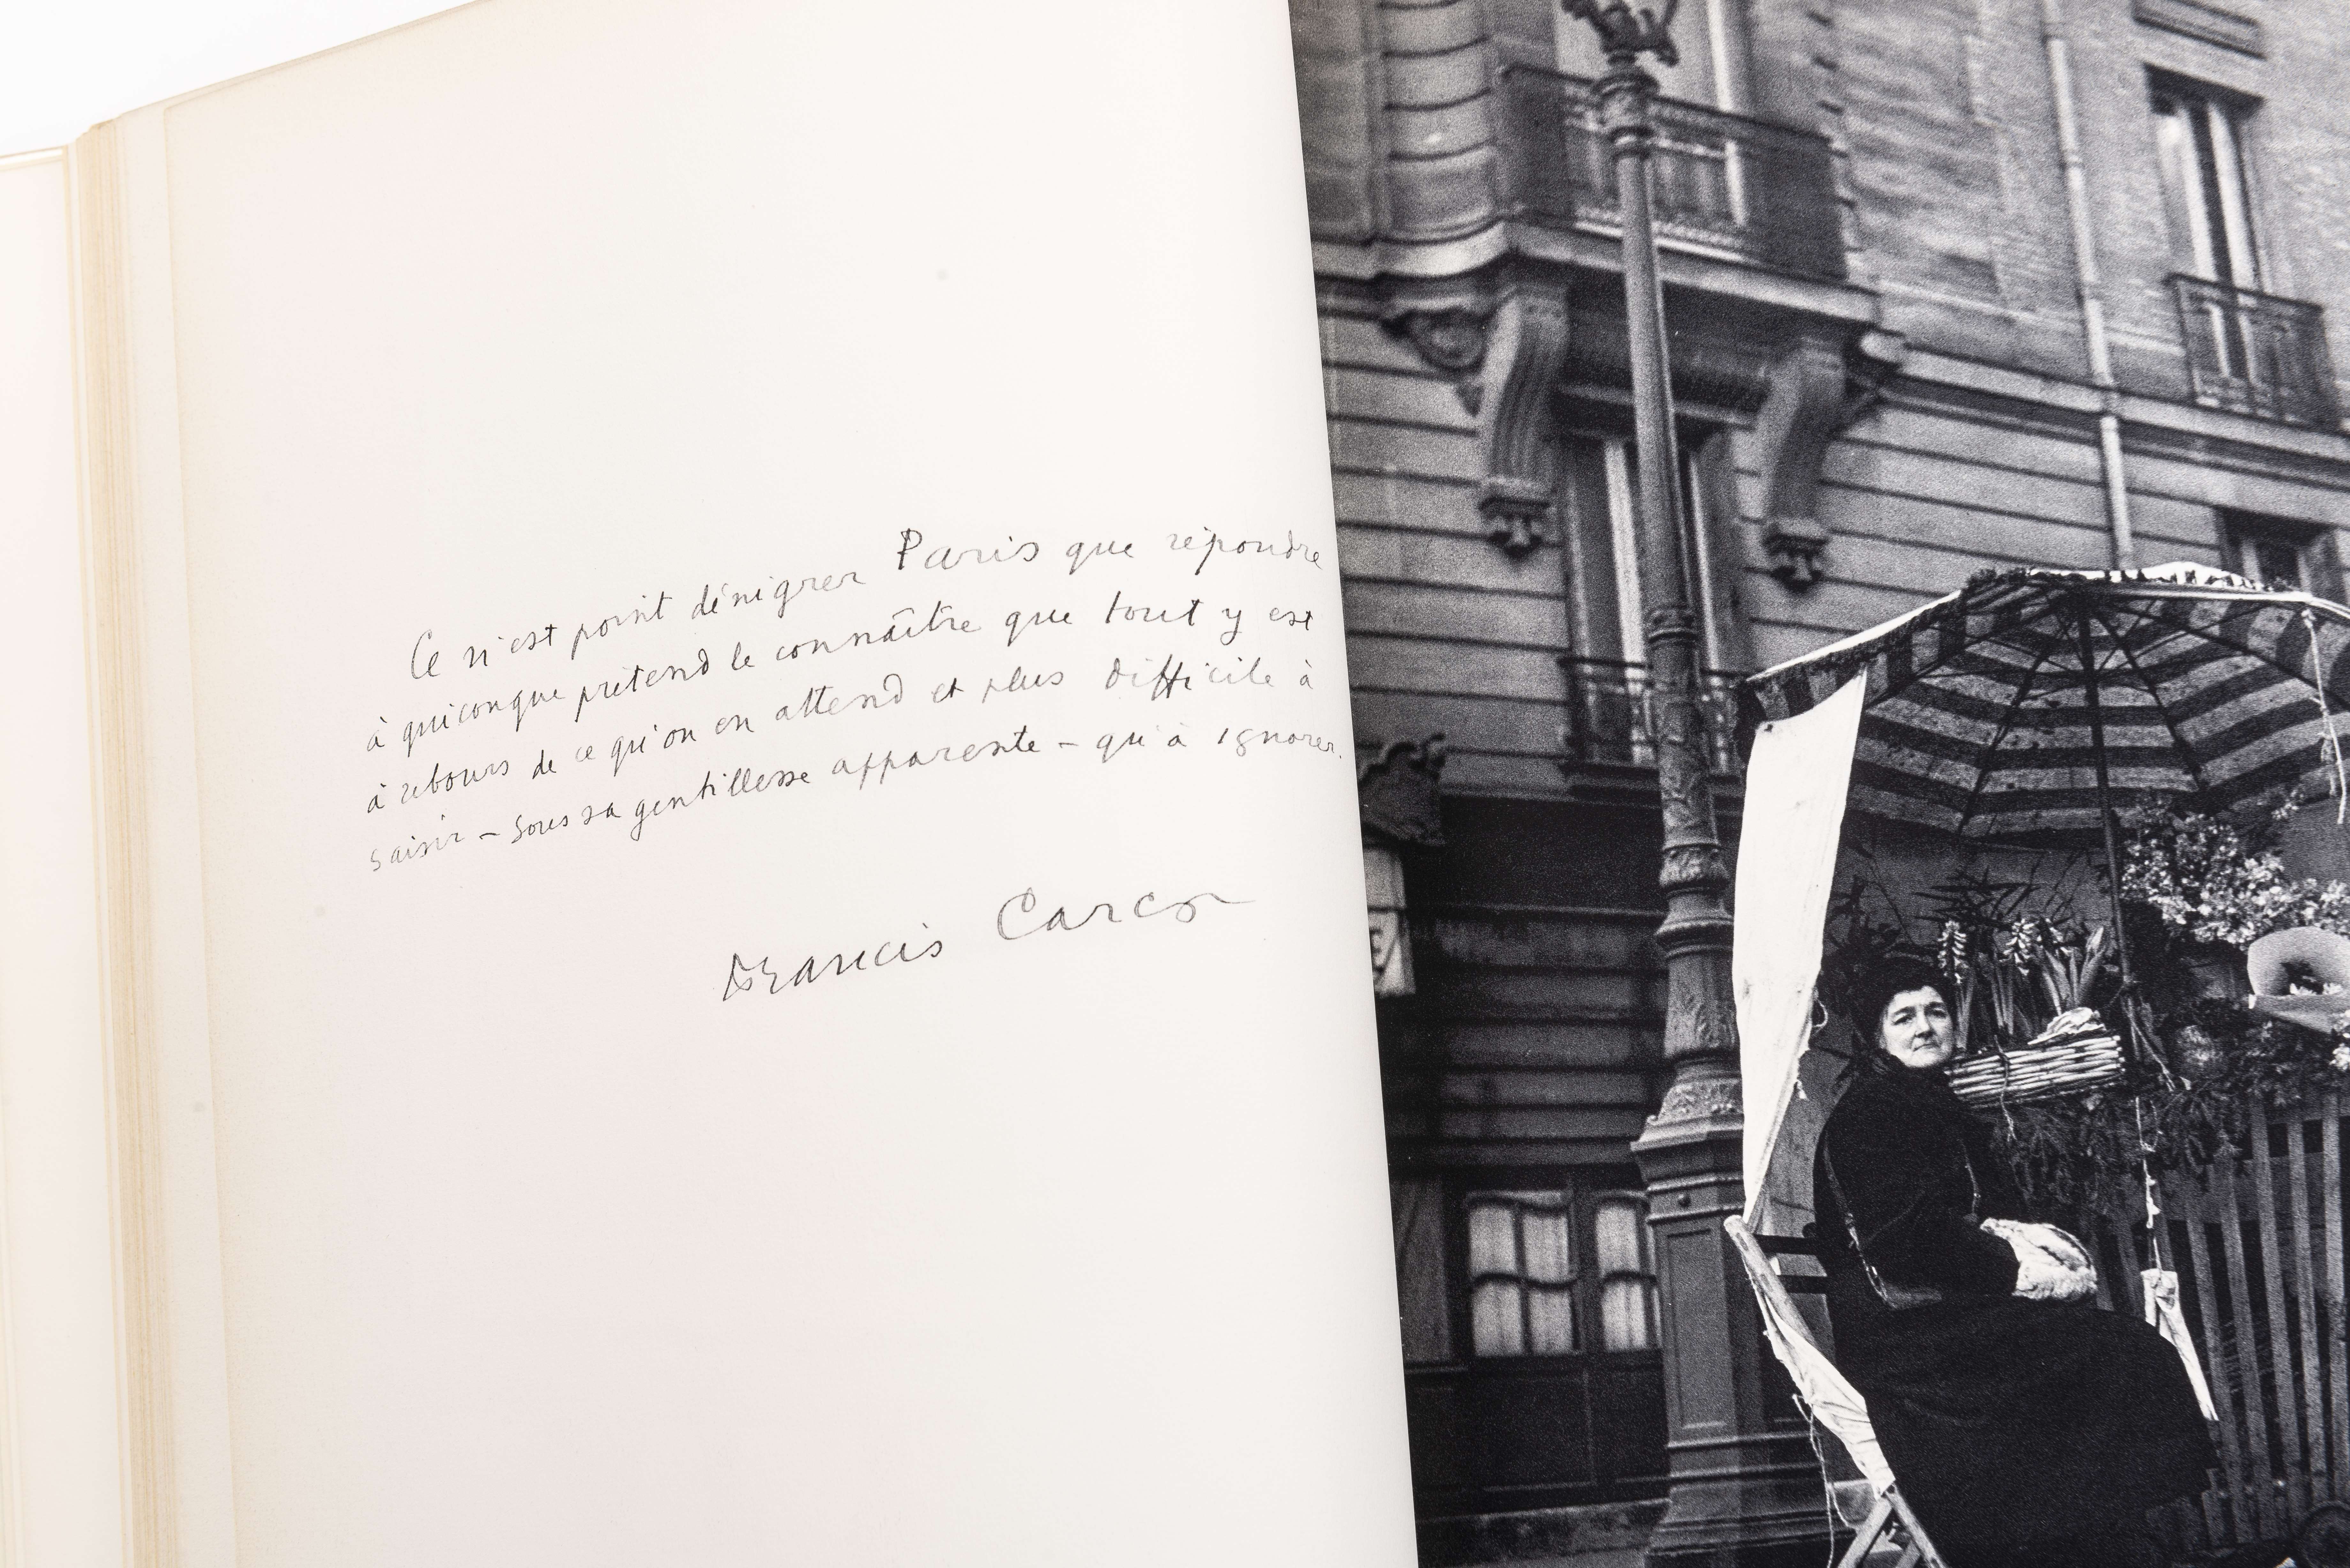 Ce n'est point dénigrer Paris que répondre
à quiconque prétend le connaître que tout y est
à rebours de ce qu'on en attend et plus difficile à
saisir – sous sa gentillesse apparente – qu'à ignorer.
Francis Carco